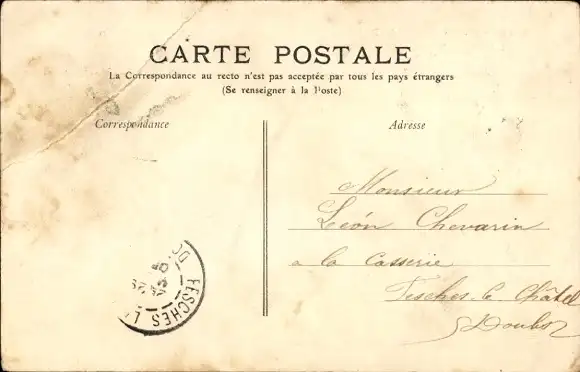 CARTE POSTALE
La Correspondance au recto n'est pas acceptée par tous les pays étrangers
(Se renseigner à la Poste)
Correspondance
Adresse
Monsieur
Léon Chevarin
a la Casserie
Fesches le Châtel
Doubs
FESCHES L